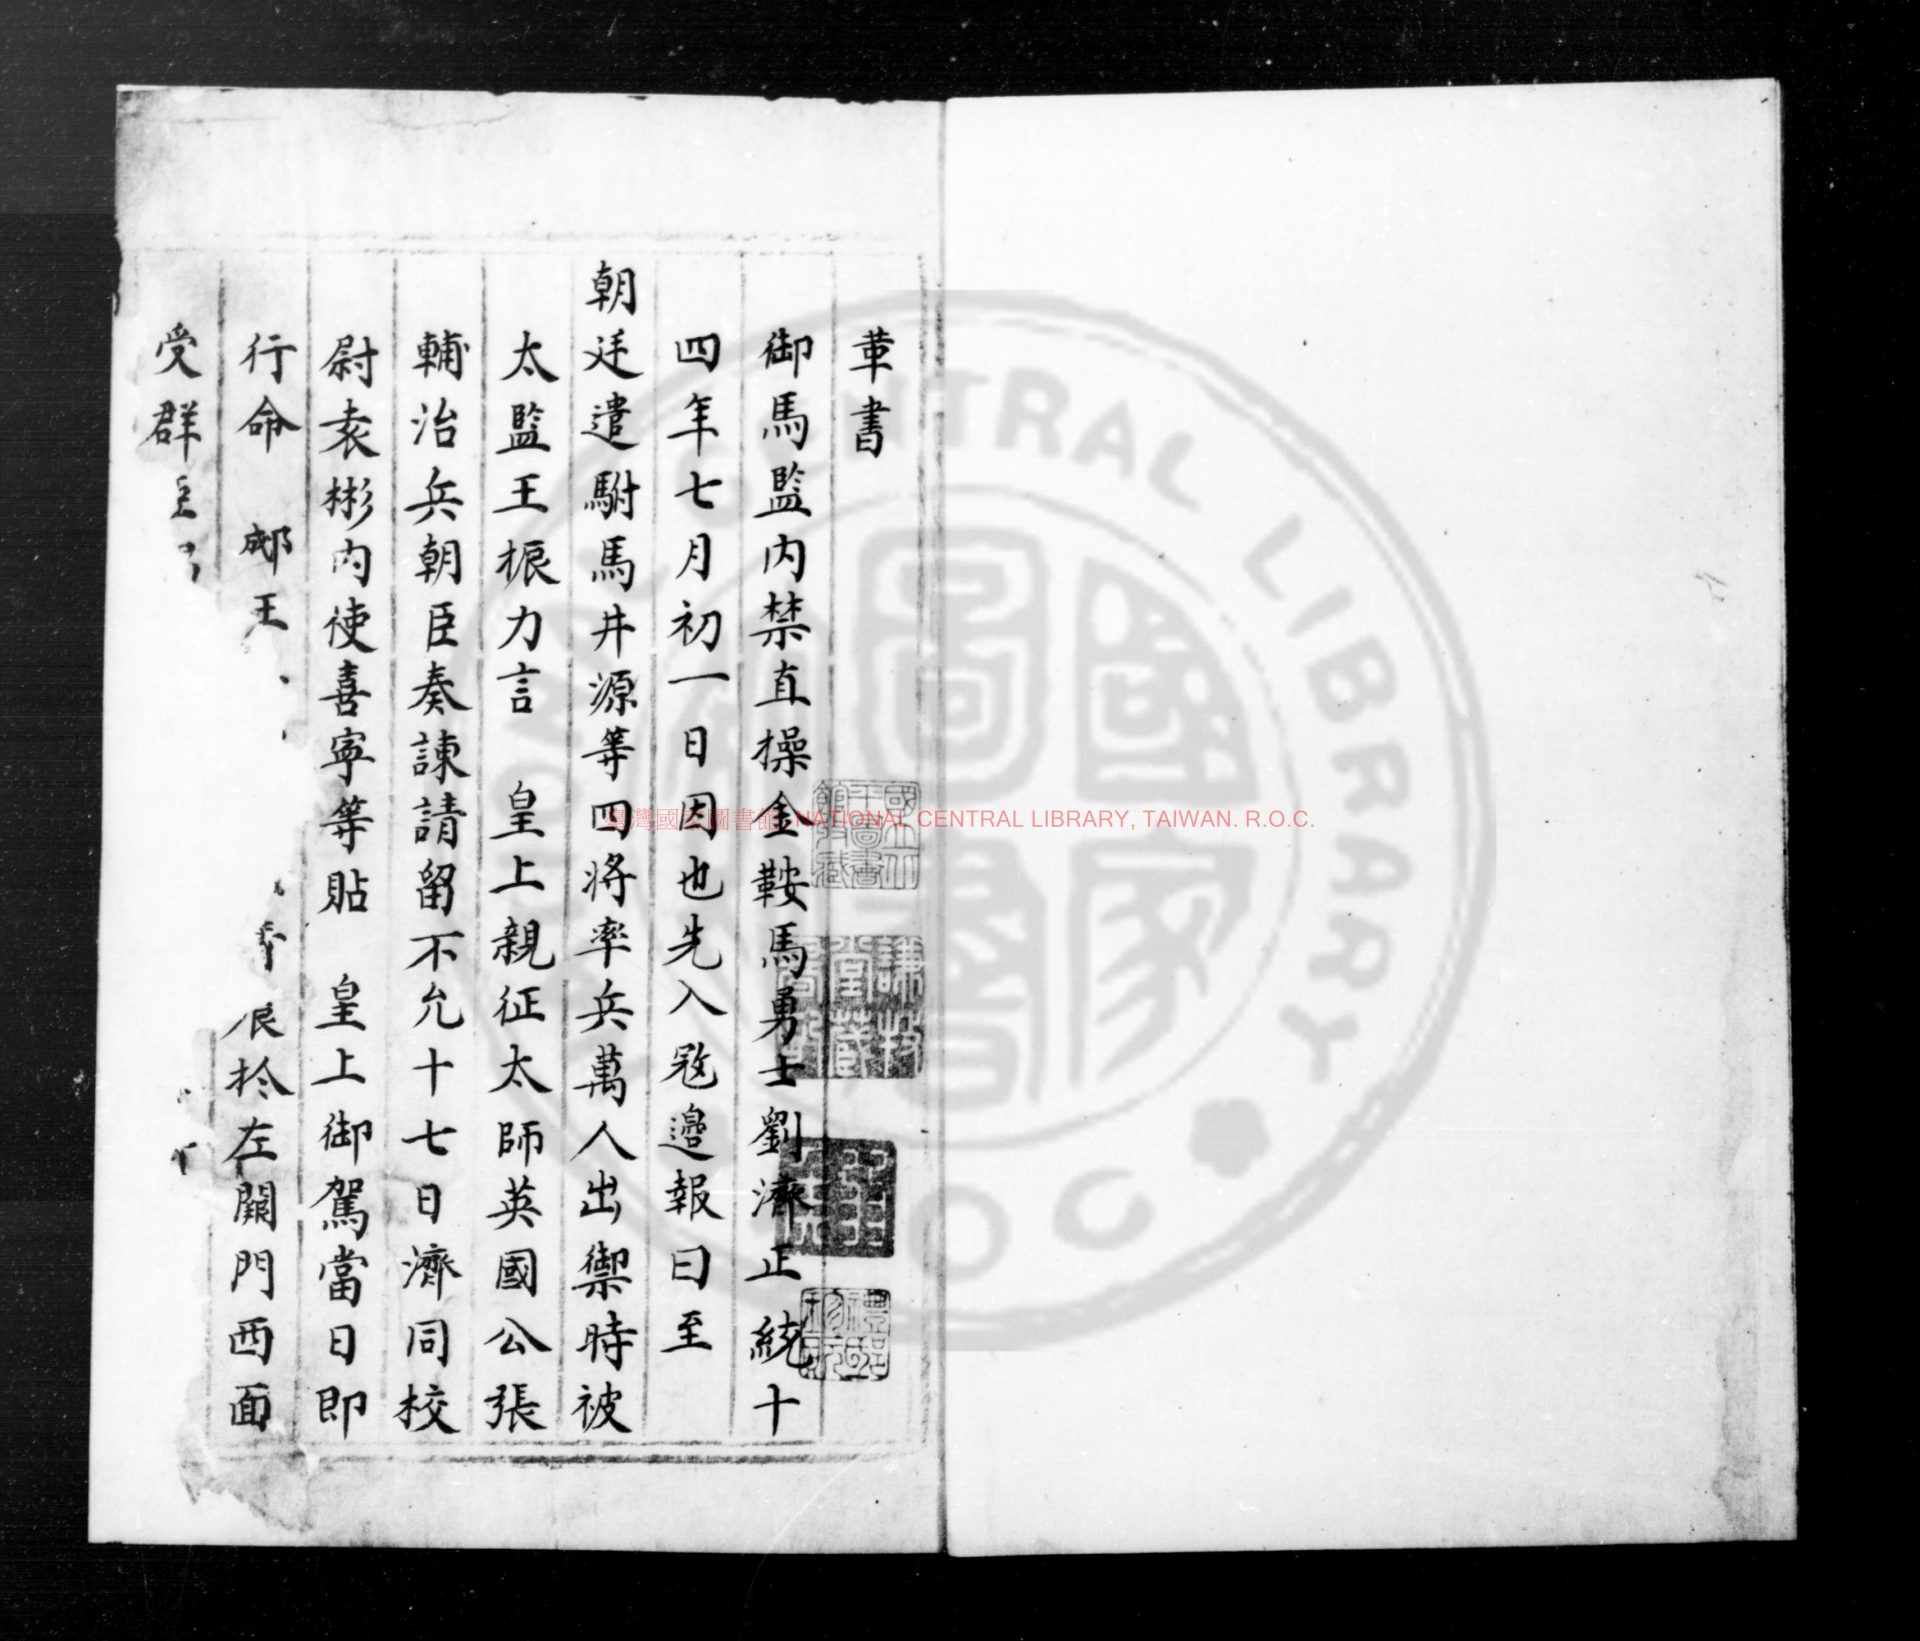 革書
御馬監内禁直操金鞍馬勇士劉濟正統十
四年七月初一日因也先入寇邉報曰至
朝廷遣駙馬井源等四將率兵萬人出禦時被
太監王振力言　皇上親征太師英國公張
輔治兵朝臣奏諫請留不允十七日濟同校
尉袁彬内使喜寧等貼　皇上御駕當日即
行命　郕王
扵左闕門西面
受群
臺灣國家圖書館 NATIONAL CENTRAL LIBRARY, TAIWAN. R.O.C.
國立中央圖書館收藏
謙牧堂藏書記
CENTRAL LIBRARY
ROC
國家圖書